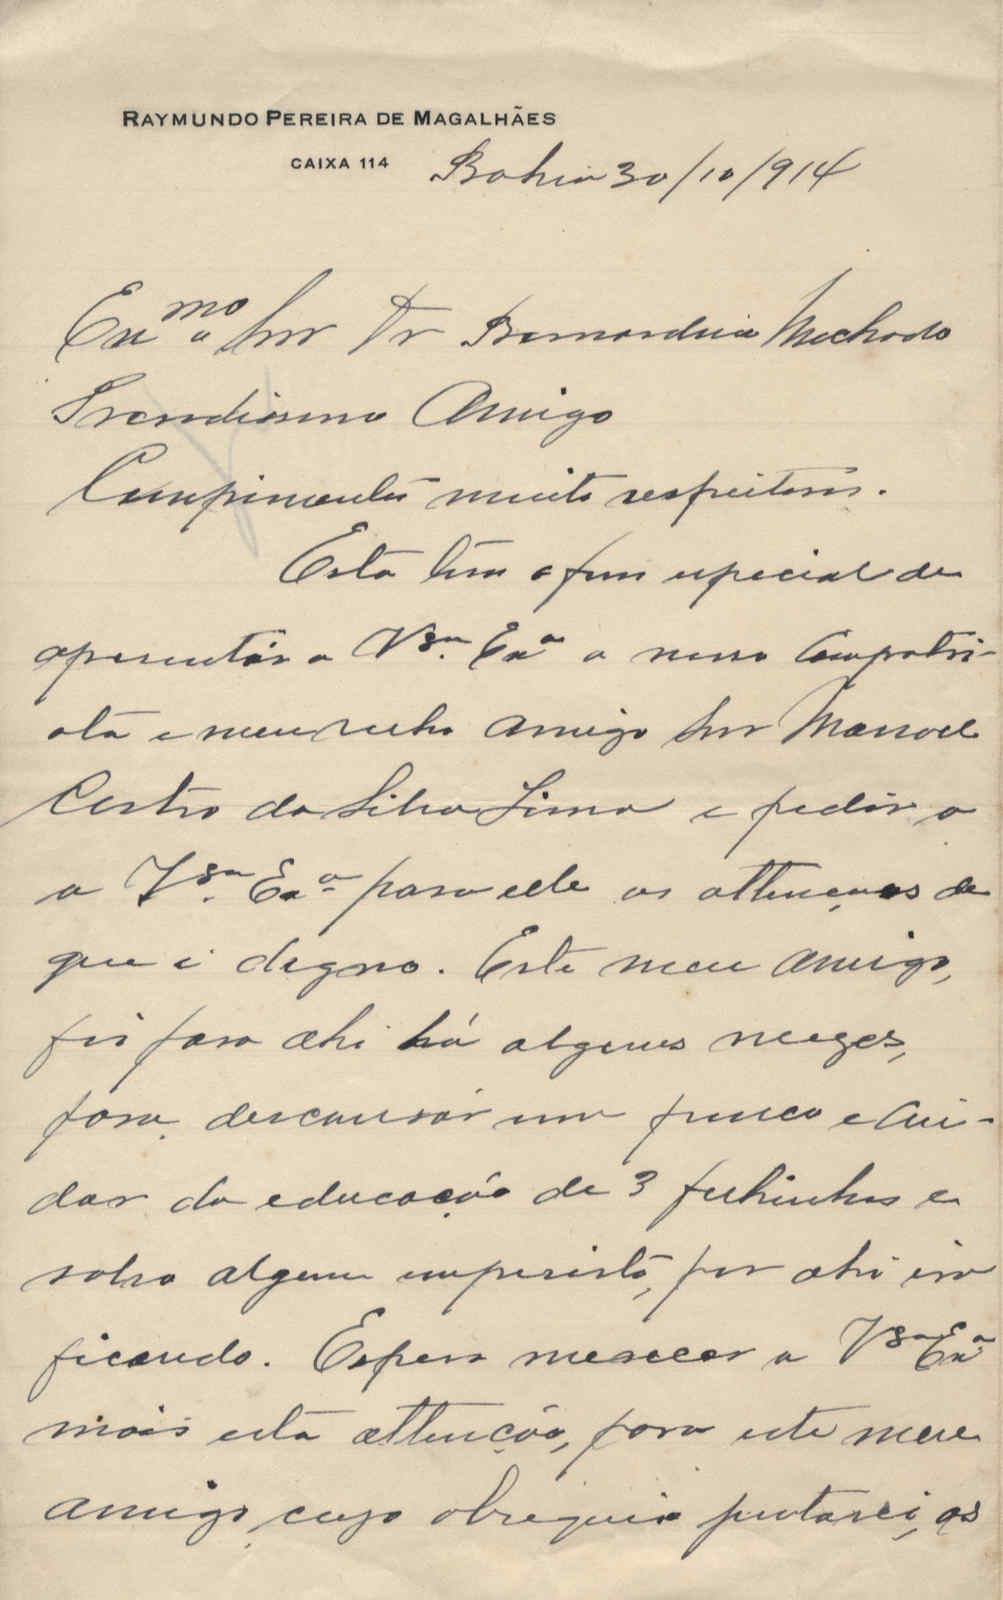 RAYMUNDO PEREIRA DE MAGALHÃES
CAIXA 114
Bahia 30/10/914
Exmo Snr Dr Bernardino Machado
Prezadissimo Amigo
Cumprimentos muito respeitosos.
Esta tem o fim especial de
apresentár a Vsa. Exa o nosso Compatri-
ota e meu velho amigo Snr Manoel
Castro da Silva Lima e pedir a
a Vsa. Exa. para elle as attenções de
que é digno. Este meu amigo,
foi para ahi há alguns mezes,
para descansár um pouco e cui-
dar da educação de 3 filhinhos e
salvo algum imprevisto, por ahi irá
ficando. Espero merecer a Vsa Exa
mais esta attenção, para este meu
amigo cujo obsequio juntarei, as